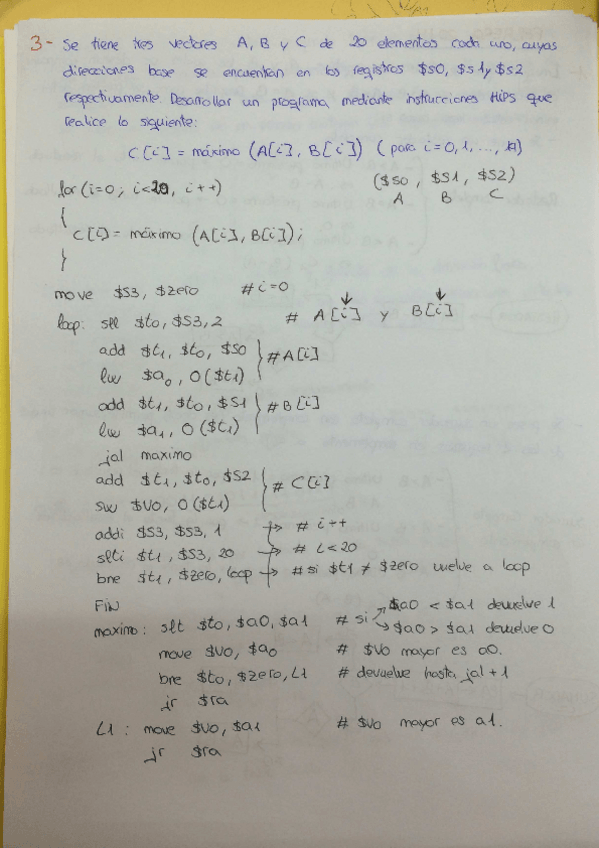 3- Se tiene tres vectores A, B y C de 20 elementos cada uno, cuyas
direcciones base se encuentran en los registros $s0, $s1 y $s2
respectivamente. Desarrollar un programa mediante instrucciones MIPS que
realice lo siguiente:
C[i] = máximo (A[i], B[i]) (para i=0,1,...,
for (i=0; i<20, i++) ($s0, $s1, $s2)
{ A B C
C[i] = máximo (A[i], B[i]);
}
move $s3, $zero #i=0
loop: sll $t0, $s3, 2 # A[i] y B[i]
add $t1, $t0, $s0 } #A[i]
lw $a0, 0($t1)
add $t1, $t0, $s1 } #B[i]
lw $a1, 0($t1)
jal maximo
add $t1, $t0, $s2 } # C[i]
sw $v0, 0($t1)
addi $s3, $s3, 1 → # i++
slti $t1, $s3, 20 → # i<20
bne $t1, $zero, loop → #si $t1 ≠ $zero vuelve a loop
FIN
maximo: slt $t0, $a0, $a1 # si $a0 < $a1 devuelve 1
$a0 > $a1 devuelve 0
move $v0, $a0 # $v0 mayor es a0.
bne $t0, $zero, L1 # devuelve hasta jal+1
jr $ra
L1: move $v0, $a1 # $v0 mayor es a1.
jr $ra